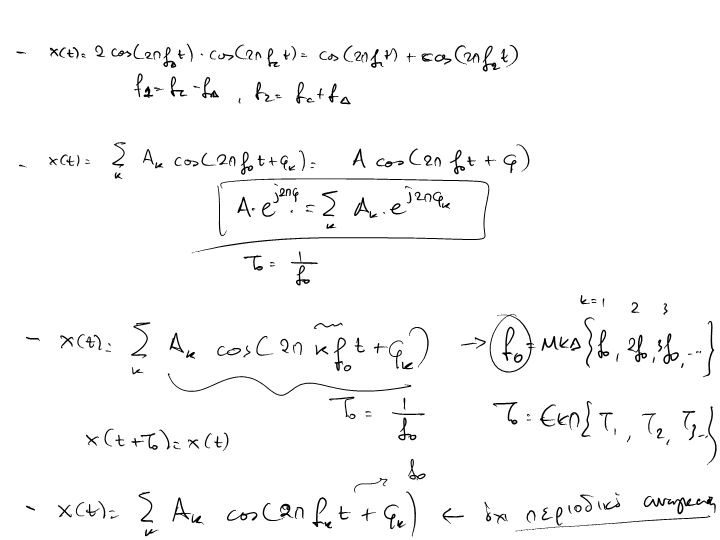 - x(t) = 2 cos(2πf₀t) · cos(2πf_c t) = cos(2πf₁t) + cos(2πf₂t)
f₁ = f_c - f_Δ , f₂ = f_c + f_Δ
- x(t) = Σ_k A_k cos(2πf₀t + φ_k) = A cos(2πf₀t + φ)
A · e^{j2πφ} = Σ_k A_k · e^{j2πφ_k}
T₀ = 1/f₀
k=1 2 3
- x(t) = Σ_k A_k cos(2πkf₀t + φ_k) → f₀ = ΜΚΔ{f₀, 2f₀, 3f₀, ...}
T₀ = 1/f₀ T₀ = ΕΚΠ{T₁, T₂, T₃...}
x(t + T₀) = x(t)
f₀
- x(t) = Σ_k A_k cos(2πf_k t + φ_k) ← όχι περιοδικό αναγκαστ